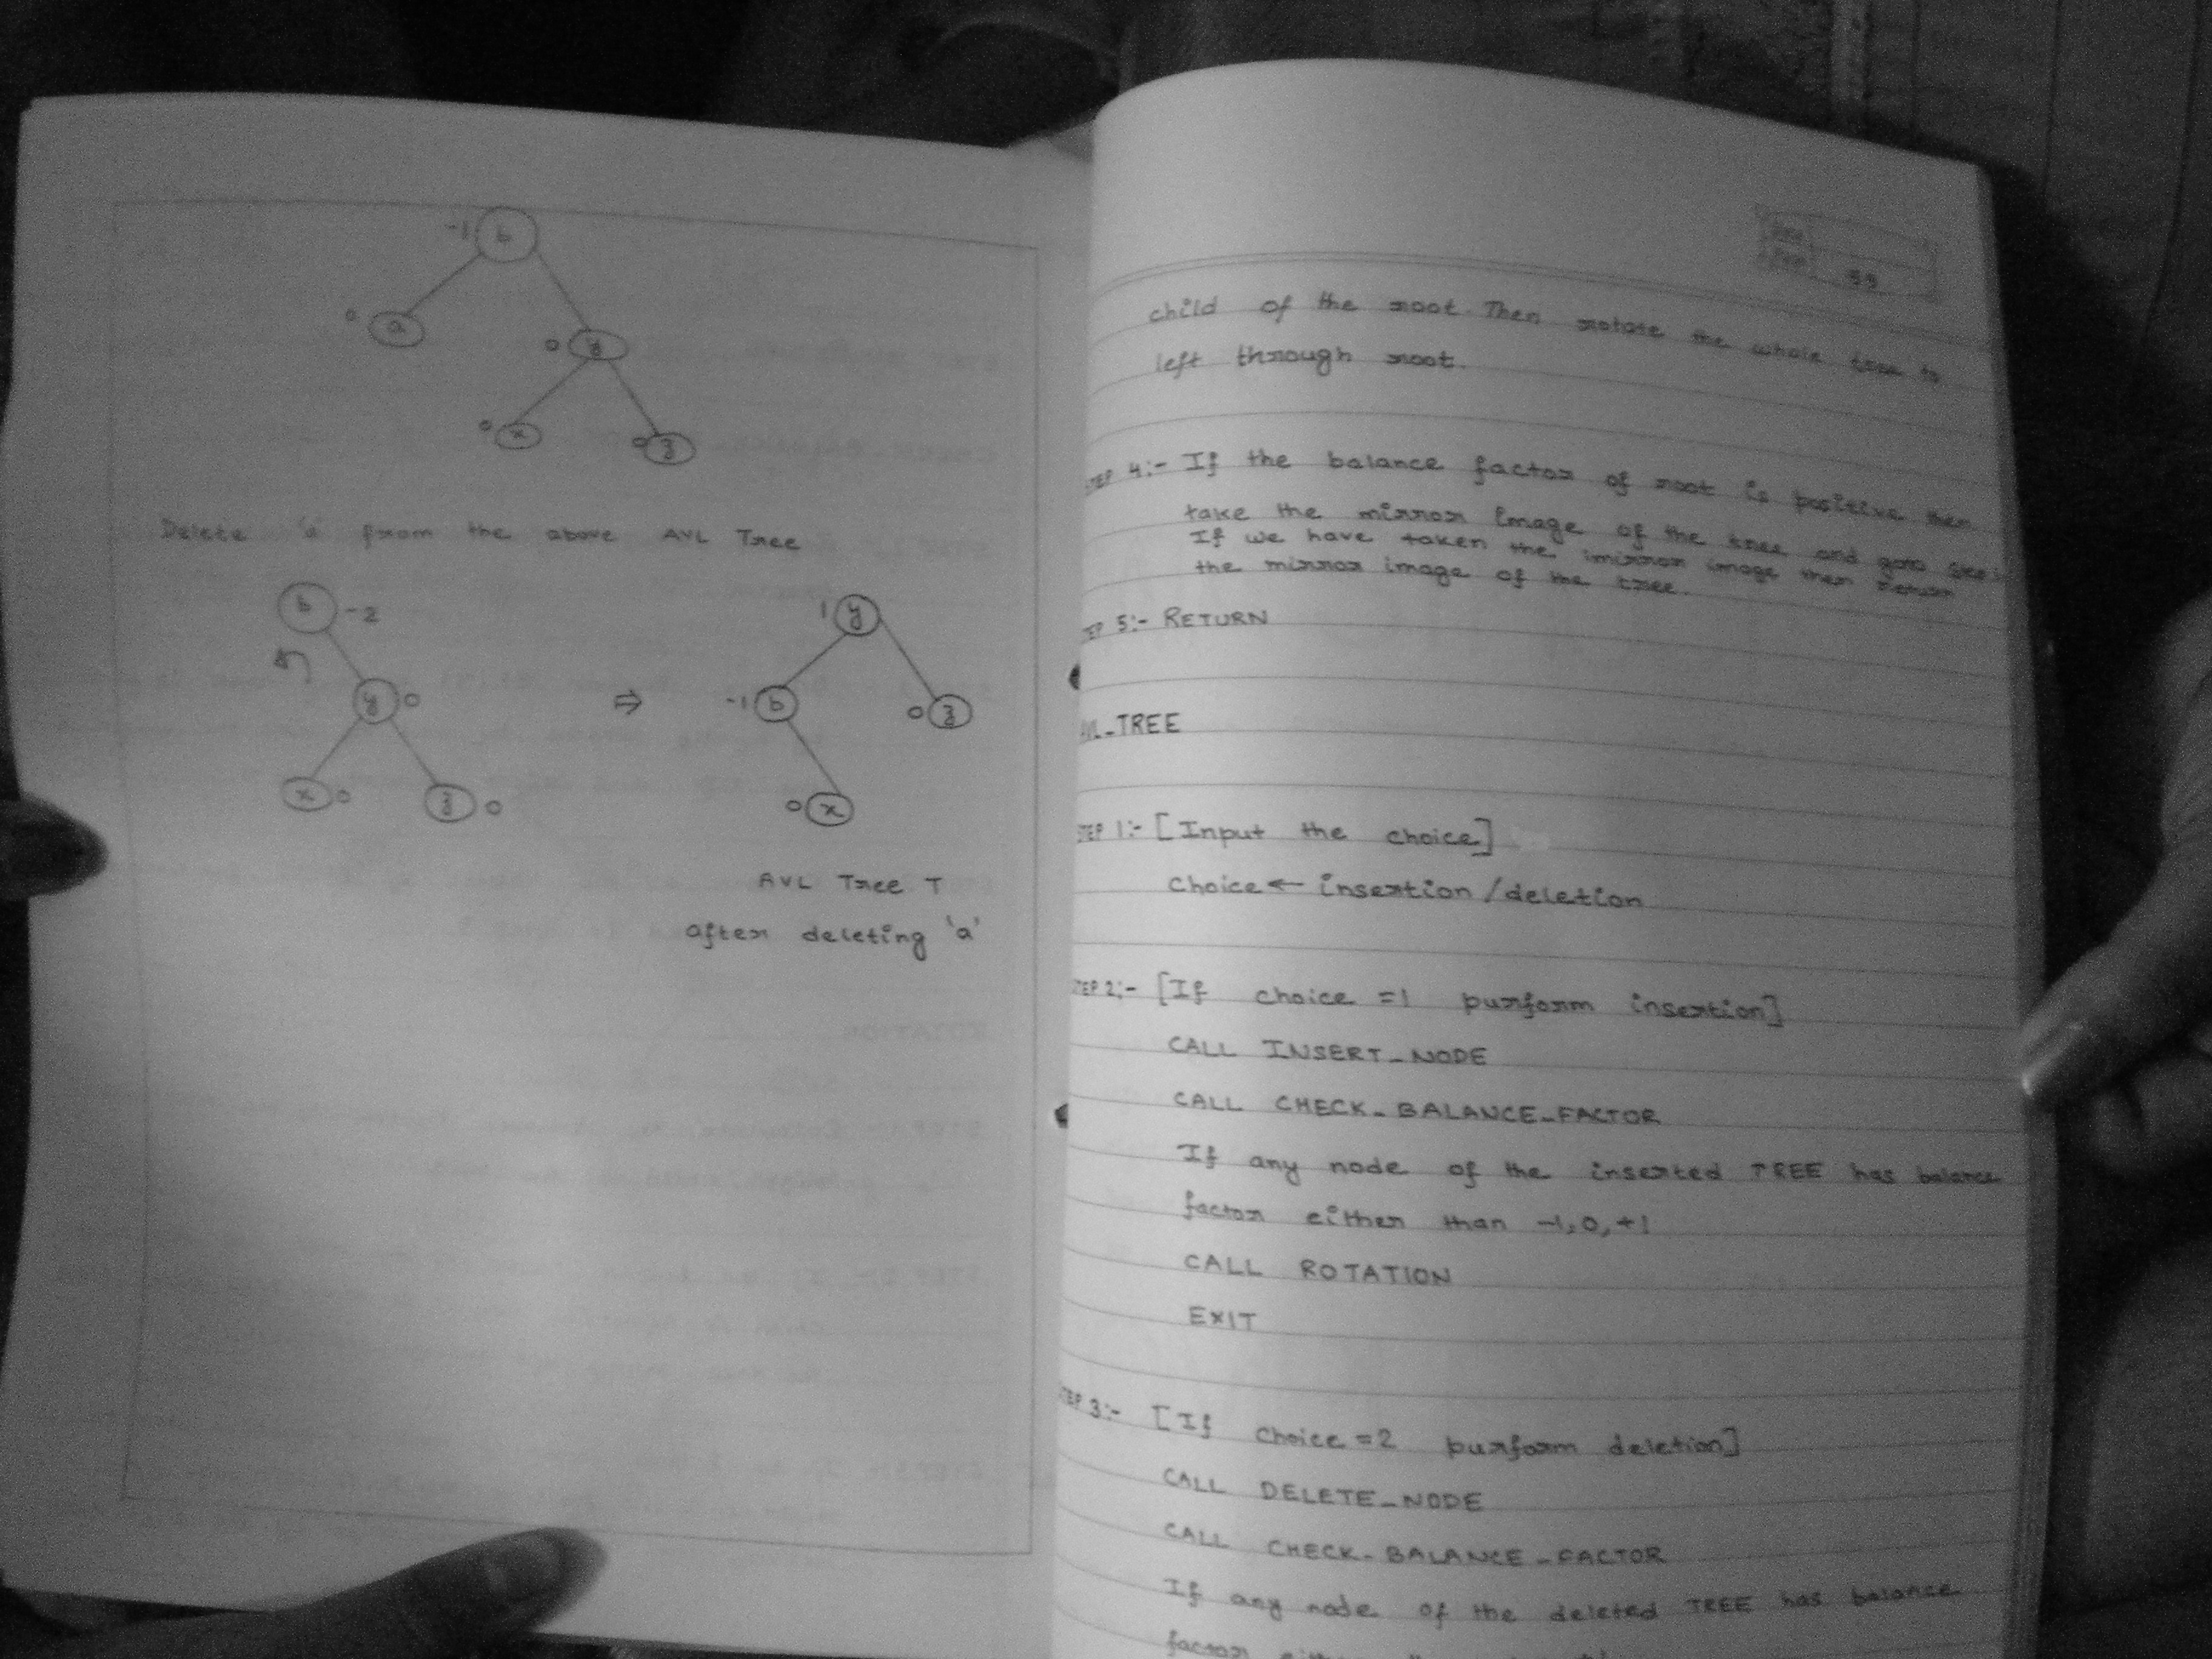 -1 b
0 a
0 y
0 x
0 z
Delete 'a' from the above AVL Tree
b -2
y 0
x 0
z 0
⇒
1 y
-1 b
0 z
0 x
AVL Tree T
after deleting 'a'
59
child of the root. Then rotate the whole tree to
left through root.
STEP 4:- If the balance factor of root is positive then
take the mirror image of the tree and goto
If we have taken the mirror image then Return
the mirror image of the tree.
STEP 5:- RETURN
AVL_TREE
STEP 1:- [Input the choice]
choice ← insertion/deletion
STEP 2:- [If choice =1 purform insertion]
CALL INSERT_NODE
CALL CHECK_BALANCE_FACTOR
If any node of the inserted TREE has balance
factor either than -1,0,+1
CALL ROTATION
EXIT
STEP 3:- [If choice =2 purform deletion]
CALL DELETE_NODE
CALL CHECK_BALANCE_FACTOR
If any node of the deleted TREE has balance
factor